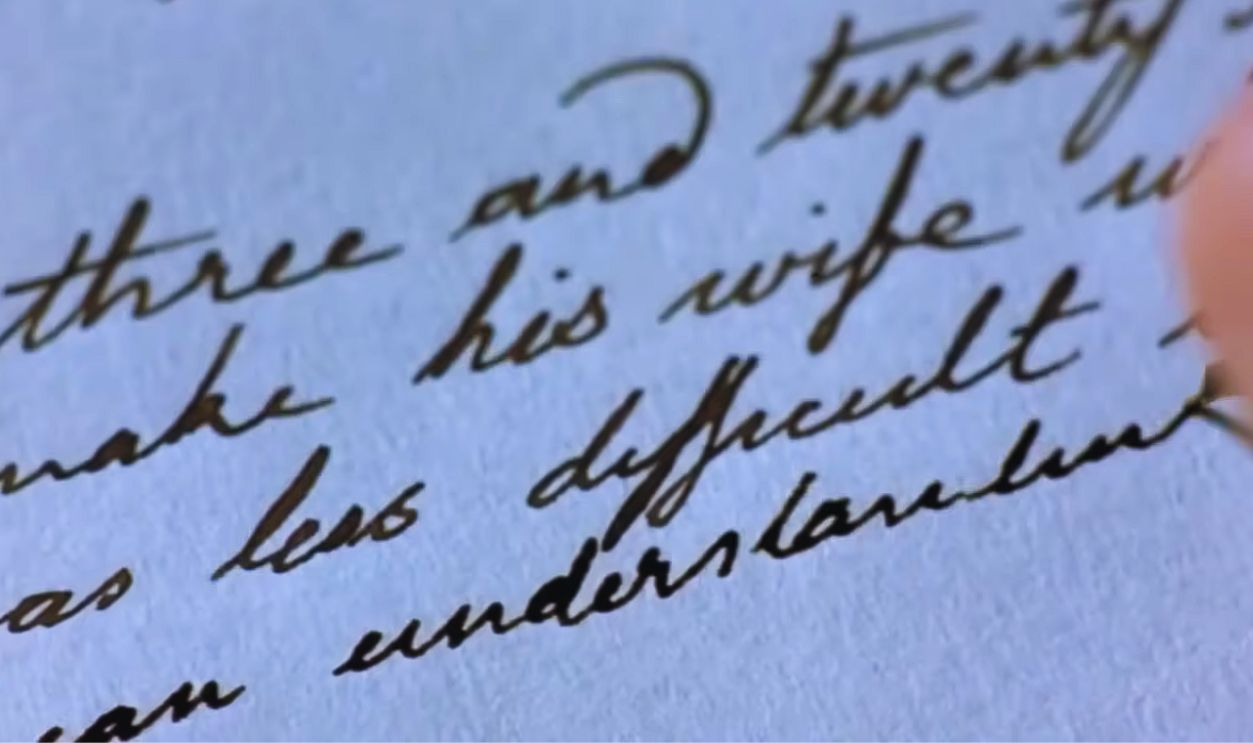 three and twenty
make his wife
as less difficult
understan